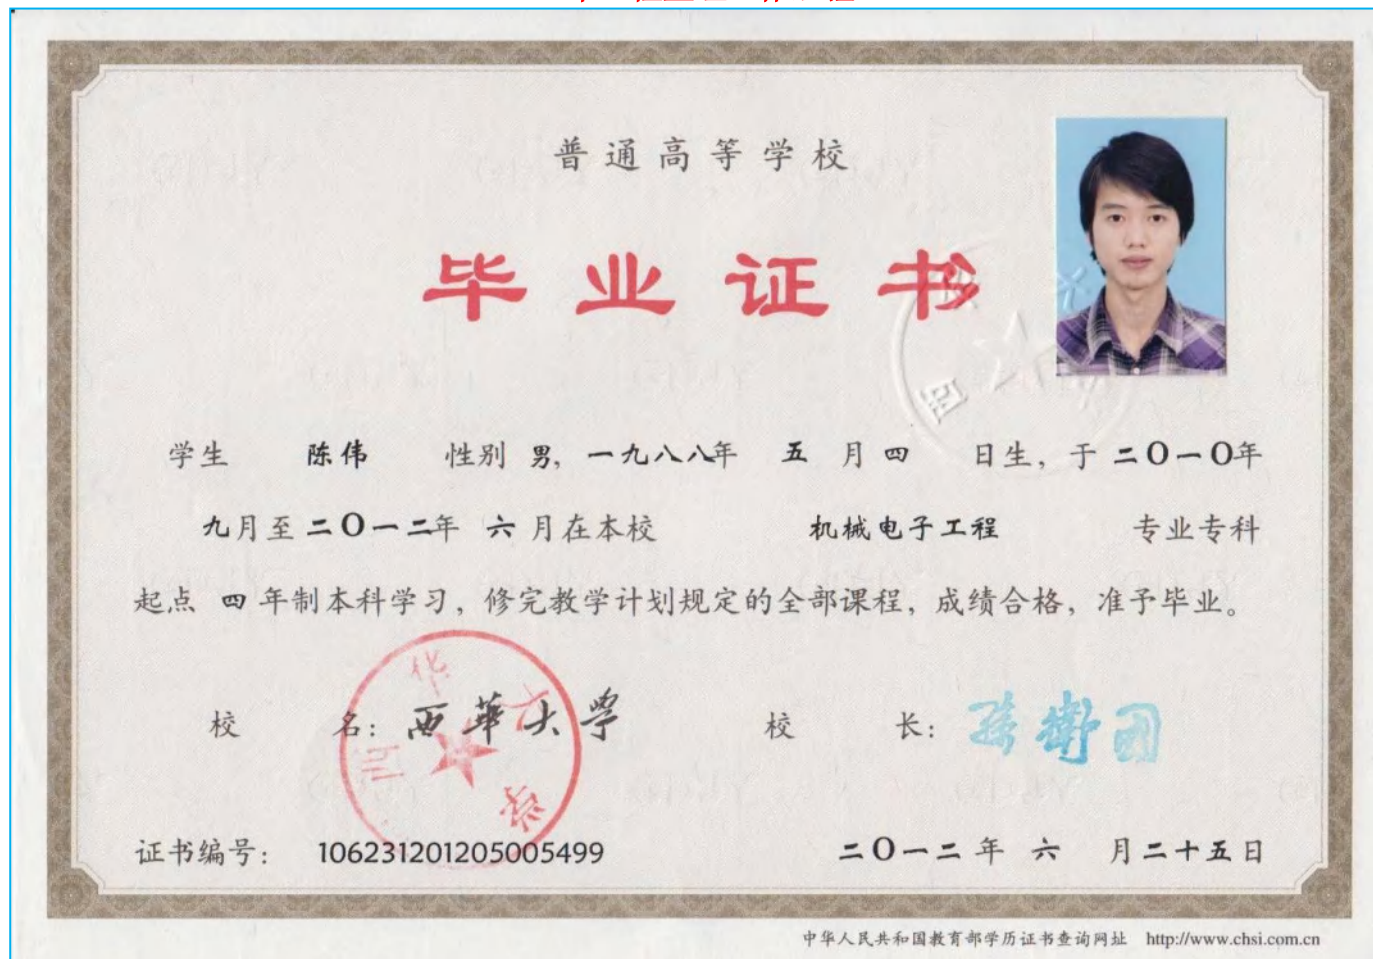 普通高等学校
毕业证书
学生 陈伟 性别 男, 一九八八年 五 月 四 日生, 于 二O一O年
九月至 二O一二年 六 月在本校 机械电子工程 专业专科
起点 四 年制本科学习, 修完教学计划规定的全部课程, 成绩合格, 准予毕业。
校 名: 西華大學 校 长: 孫衛国
西华大学
证书编号: 106231201205005499 二O一二 年 六 月二十五日
中华人民共和国教育部学历证书查询网址 http://www.chsi.com.cn